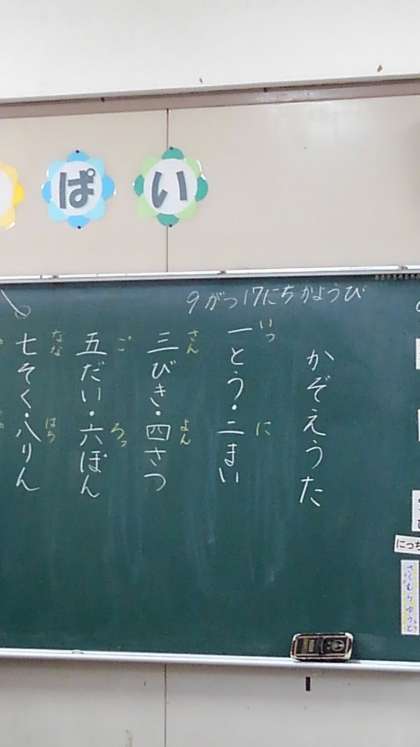 ぱい
9がつ17にちかようび
かぞえうた
一とう・二まい
いっ
に
三びき・四さつ
さん
よん
五だい・六ぽん
ご
ろっ
七そく・八りん
なな
はち
にっち